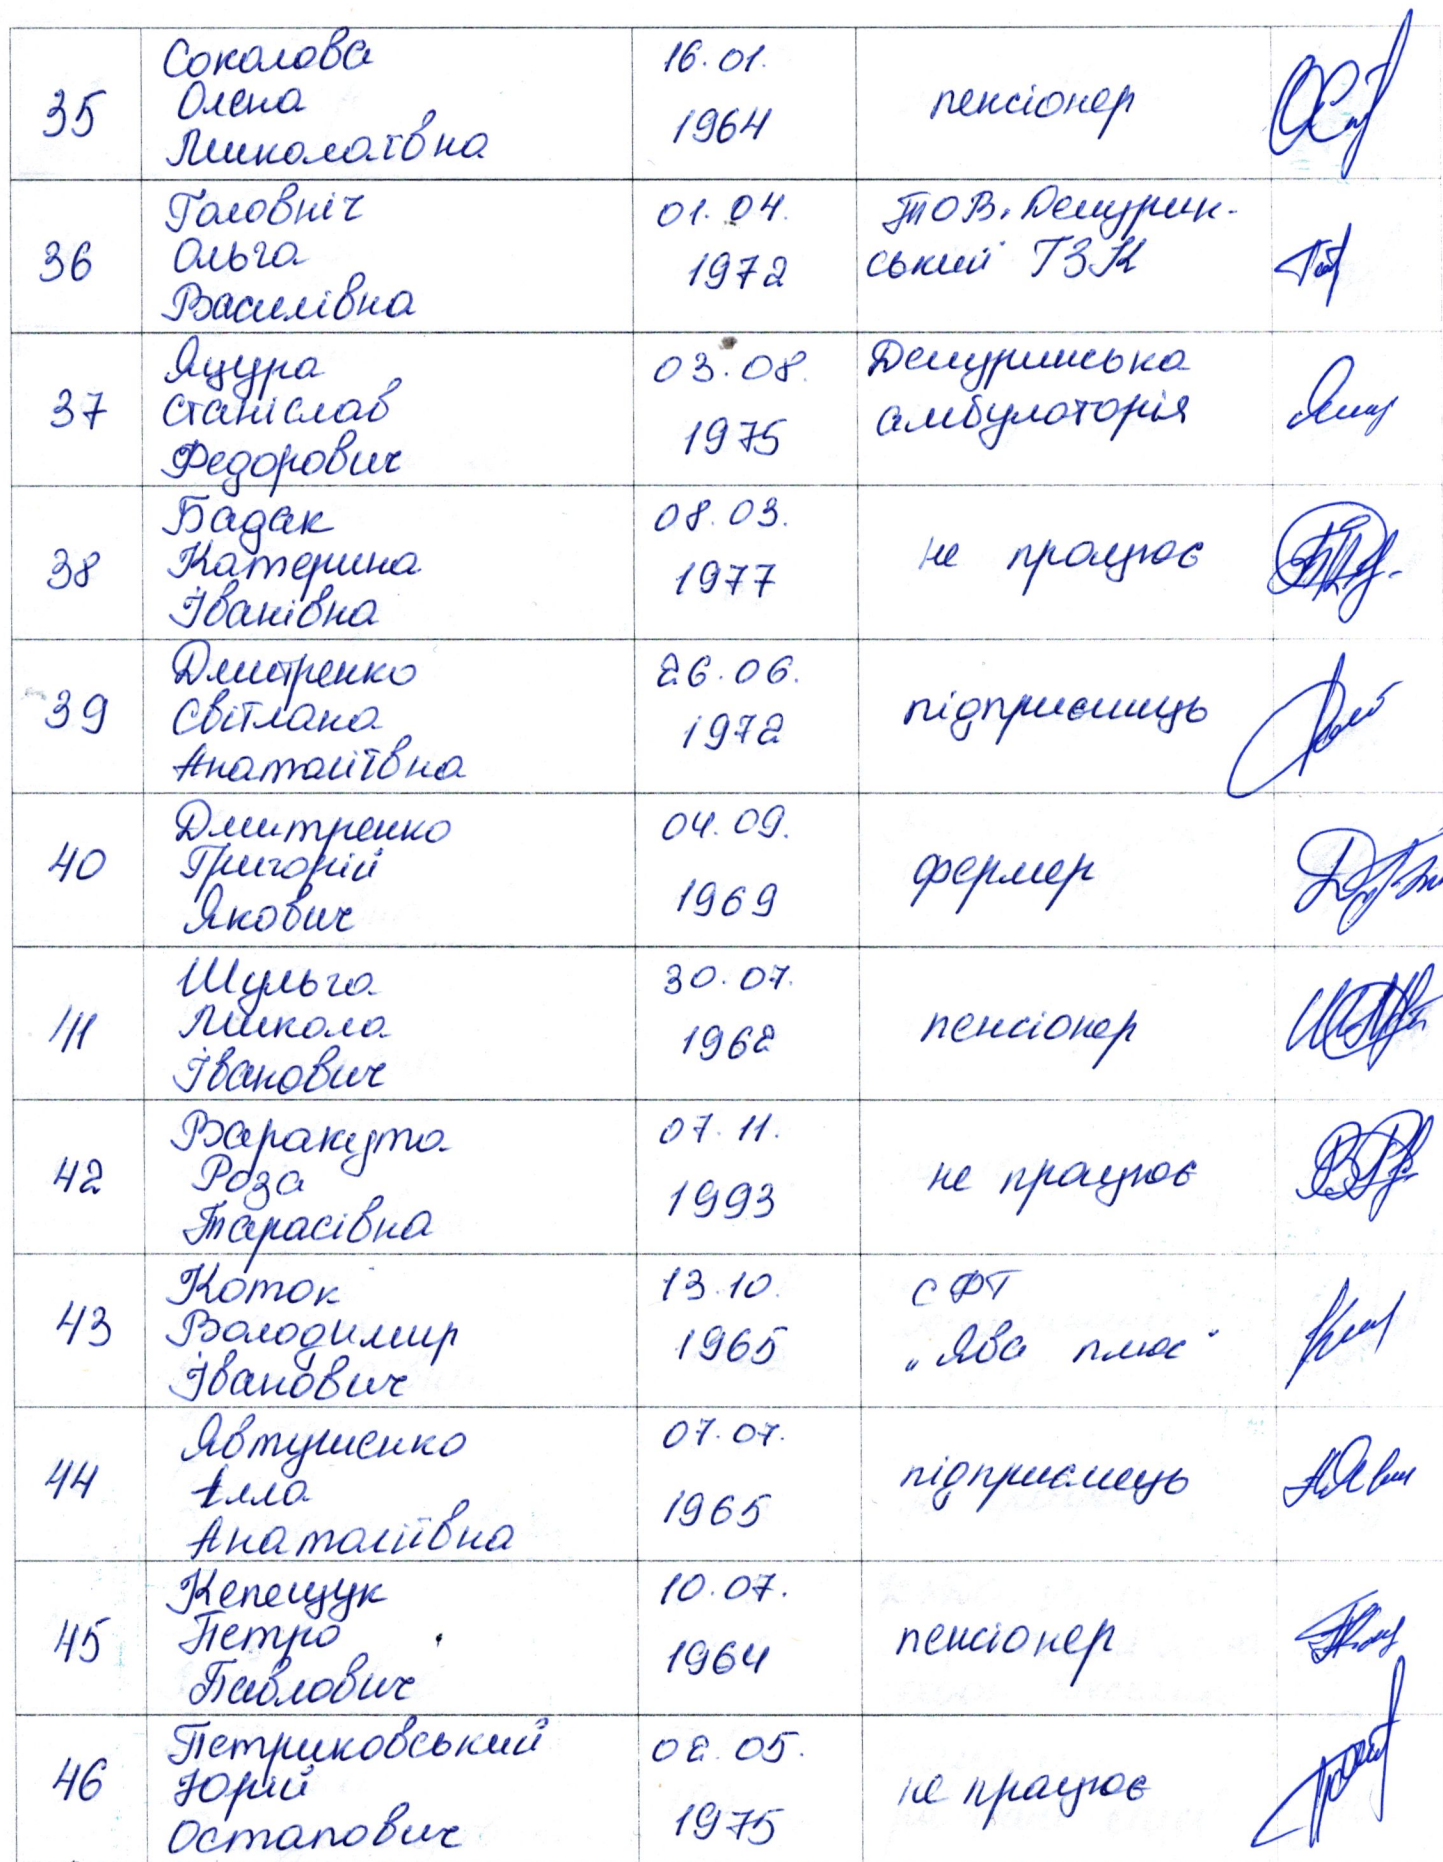 35
Соколова
Олена
Миколаївна
16.01.
1964
пенсіонер
36
Головніч
Ольга
Василівна
01.04.
1972
ТОВ. Демурин-
ський ГЗК
37
Яцура
Станіслав
Федорович
03.08.
1975
Демуринська
амбулоторія
38
Бадак
Катерина
Іванівна
08.03.
1977
не працює
39
Дмитренко
Світлана
Анатоліївна
26.06.
1972
підприємиць
40
Дмитренко
Григорій
Якович
04.09.
1969
фермер
41
Шульга
Микола
Іванович
30.07.
1962
пенсіонер
42
Варакута
Роза
Тарасівна
07.11.
1993
не працює
43
Коток
Володимир
Іванович
13.10.
1965
СФГ
„Ява плюс"
44
Явтушенко
Алла
Анатоліївна
07.07.
1965
підприємець
45
Кепещук
Петро
Павлович
10.07.
1964
пенсіонер
46
Петриковський
Юрій
Остапович
02.05.
1975
не працює